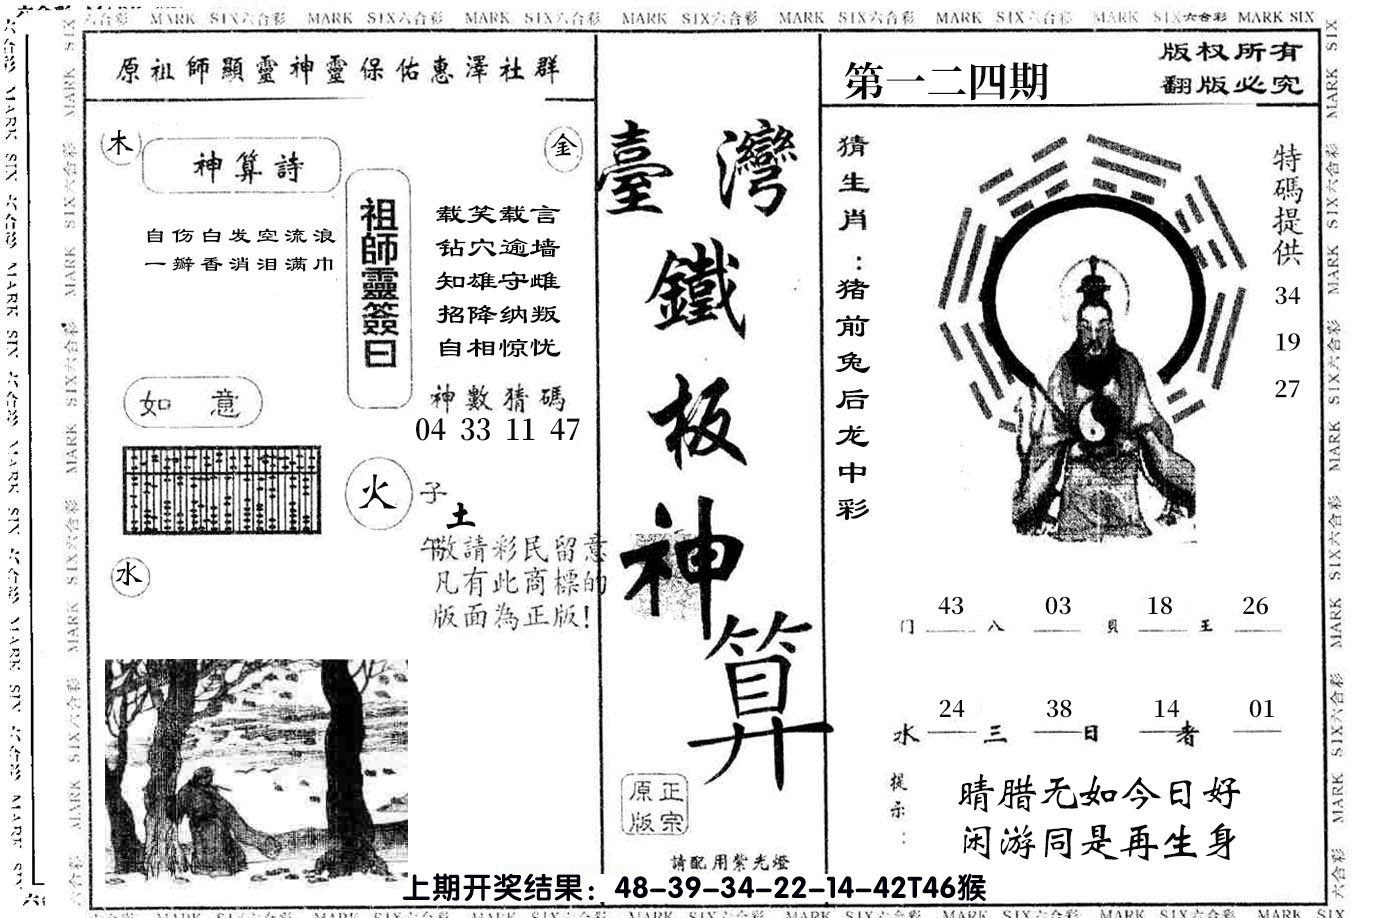 六合彩 MARK SIX六合彩 MARK SIX六合彩 MARK SIX六合彩 MARK SIX六合彩 MARK SIX六合彩 MARK SIX六合彩 MARK SIX六合彩 MARK SIX
原祖師顯靈神靈保佑惠澤社群
木
金
神算詩
自伤白发空流浪
一瓣香消泪满巾
祖師靈簽曰
载笑载言
钻穴逾墙
知雄守雌
招降纳叛
自相惊忧
神數猜碼
04 33 11 47
如 意
火
子
土
午
水
敬請彩民留意
凡有此商標的
版面為正版!
臺灣
鐵
板
神
算
正宗
原版
請配用紫光燈
第一二四期
版权所有
翻版必究
猜生肖:猪前兔后龙中彩
特碼提供
34
19
27
门 43 八 03 貝 18 王 26
水 24 三 38 日 14 者 01
提示:
晴腊无如今日好
闲游同是再生身
上期开奖结果：48-39-34-22-14-42T46猴